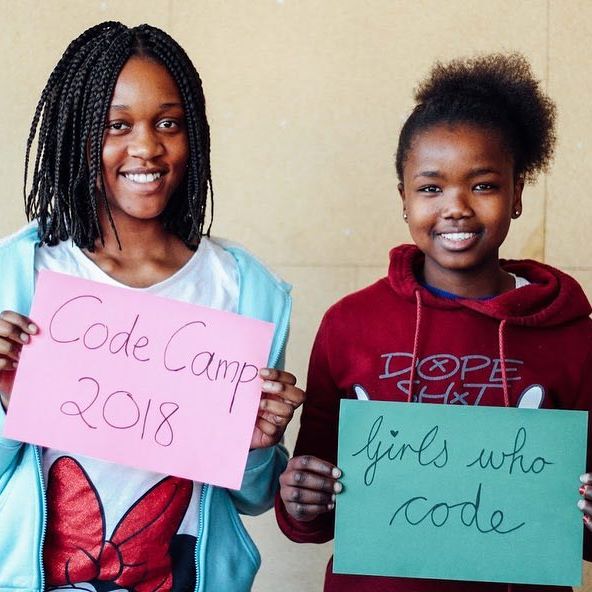 Code Camp
2018
DOPE
SH*T
Girls who
code